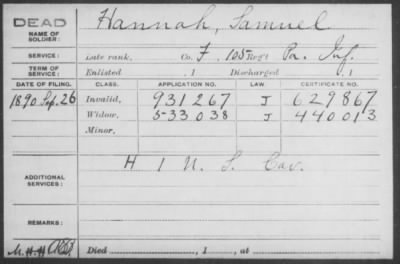 DEAD Hannah, Samuel
NAME OF SOLDIER:
SERVICE: Late rank, Co. F, 105 Reg't Pa. Inf.
TERM OF SERVICE: Enlisted , 1 Discharged , 1
DATE OF FILING. CLASS. APPLICATION NO. LAW. CERTIFICATE NO.
1890 Sep. 26 Invalid, 931267 J 629867
Widow, 533038 J 440013
Minor,
ADDITIONAL SERVICES: H 1 U. S. Cav.
REMARKS:
Died , 1 , at